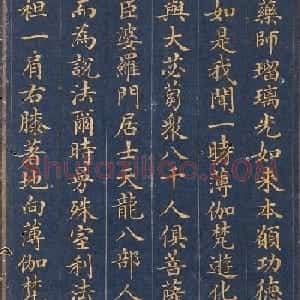 藥師瑠璃光如來本願功德
如是我聞一時薄伽梵遊化
與大苾蒭衆八千人俱菩薩
臣婆羅門居士天龍八部人
而為說法爾時曼殊室利法
袒一肩右膝著地向薄伽梵